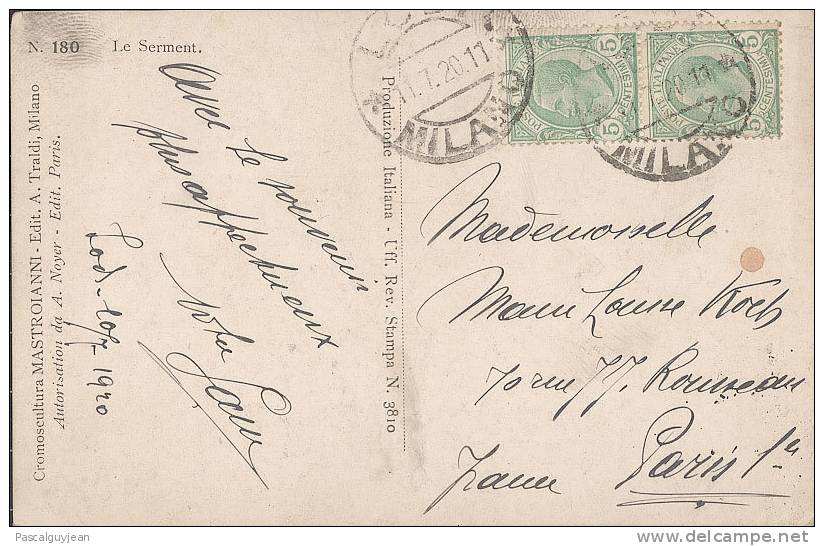 N. 180 Le Serment.
Cromoscultura MASTROIANNI - Edit. A. Traldi, Milano
Autorisation da A. Noyer - Edit. Paris.
Produzione Italiana - Uff. Rev. Stampa N. 3810
Avec le souvenir
plus affectueux
Lodi - 10/7 1920
11.7.20.11
MILANO
POSTE ITALIANE
CENTESIMI
5
5
POSTE ITALIANE
CENTESIMI
5
5
20.11
MILANO
Mademoiselle
Marie Louise Koch
70 rue J.J. Rousseau
Paris 1er
France
Pascalguyjean
delcampe.net